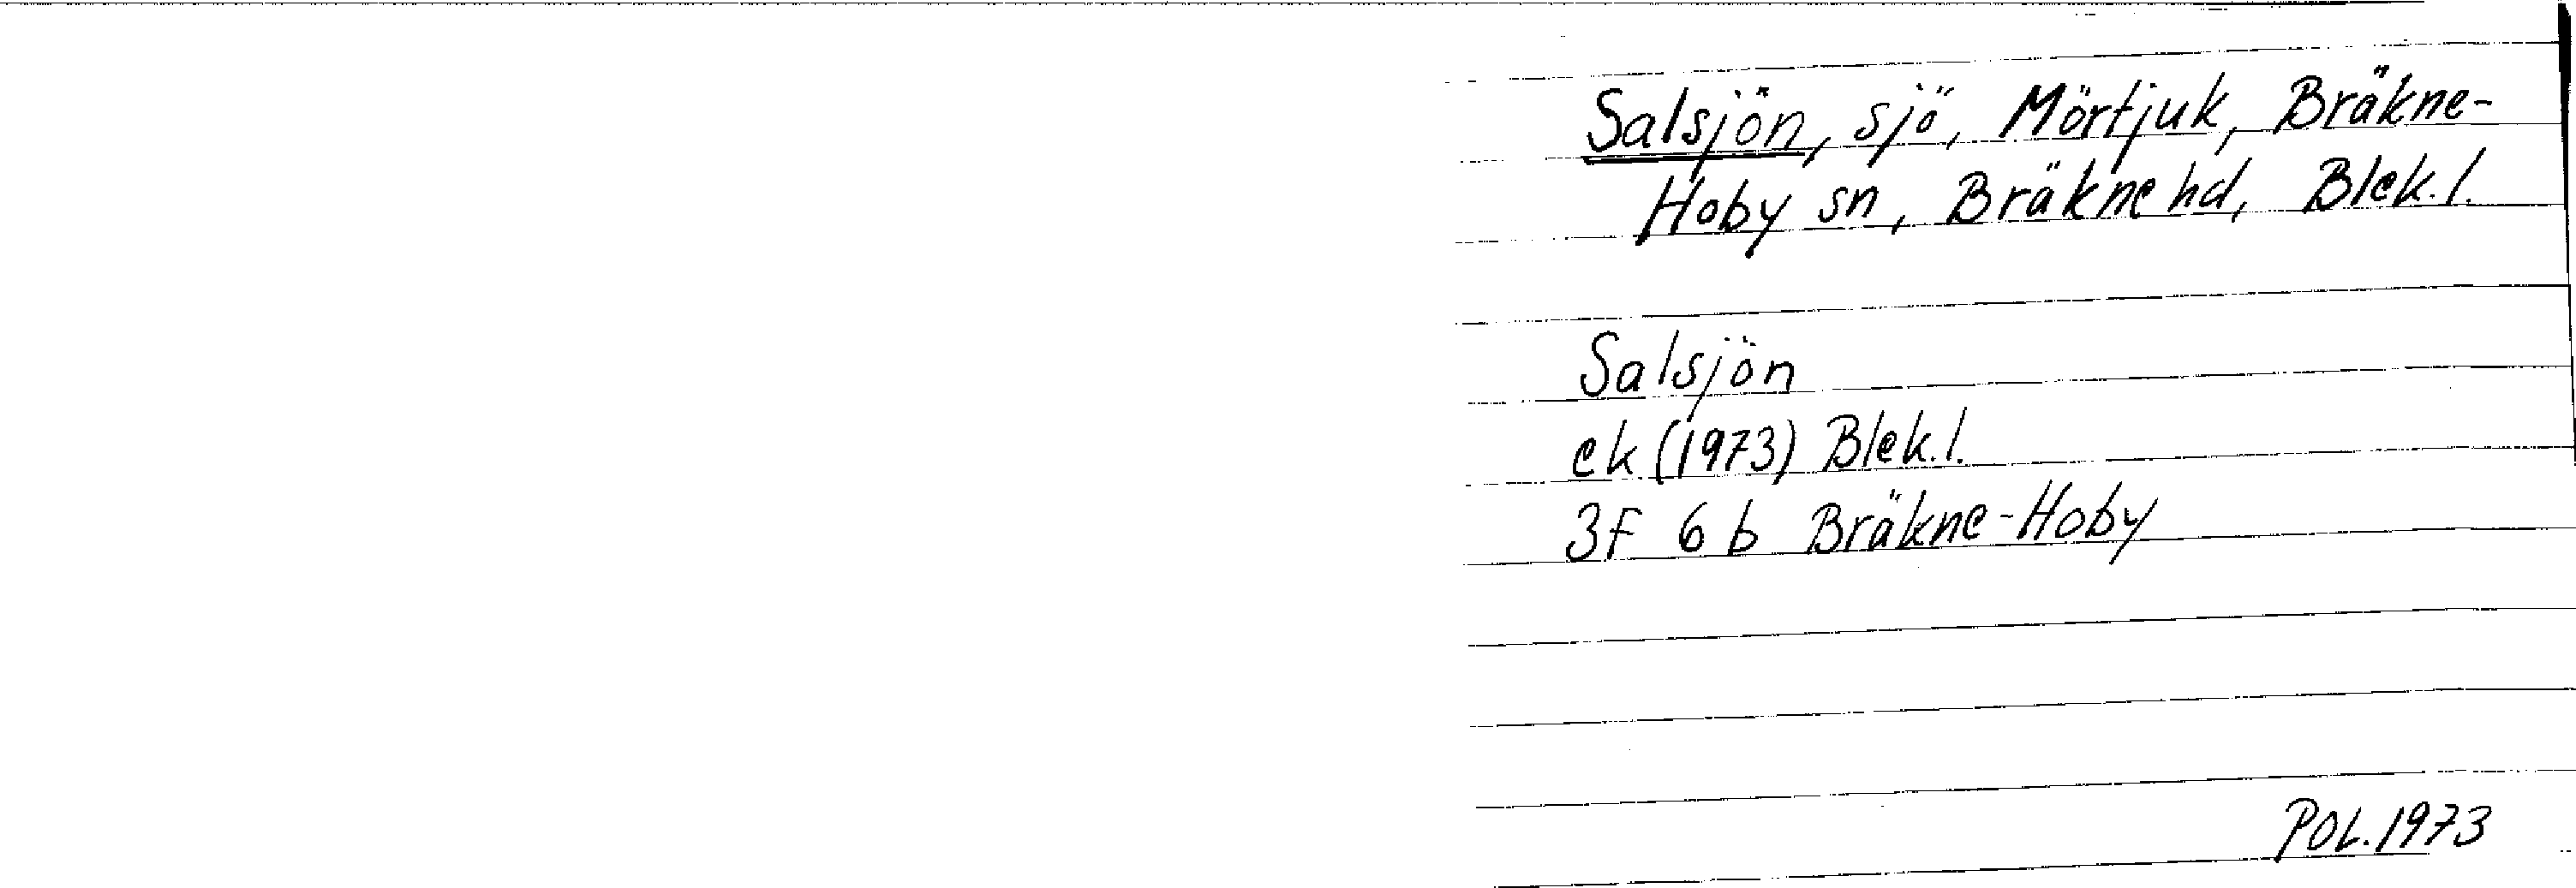 Salsjön, sjö, Mörtjuk, Bräkne-
Hoby sn, Bräkne hd, Blek.l.
Salsjön
ek (1973) Blek.l.
3F 6 b Bräkne-Hoby
POL.1973